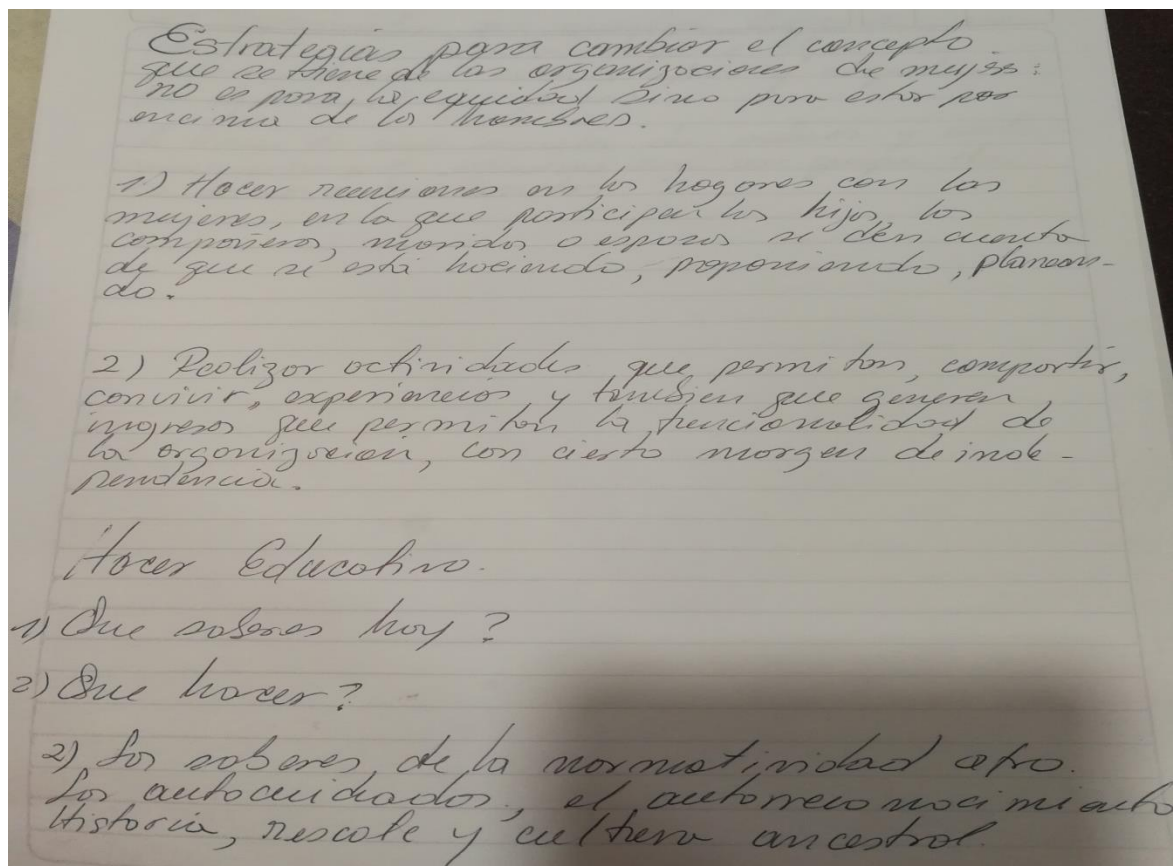 Estrategias para cambiar el concepto
que se tiene de las organizaciones de mujes:
no es para la equidad sino para estar por
encima de los hombres.
1) Hacer reuniones en los hogares con las
mujeres, en la que participen los hijos, los
compañeros, maridos o esposos se den cuenta
de que se está haciendo, proponiendo, planean-
do.
2) Realizar actividades que permitan, compartir,
convivir, experiencias y tambien que generen
ingresos que permitan la funcionalidad de
la organización, con cierto margen de inde-
pendencia.
Hacer Educativo.
1) Que saberes hoy?
2) Que hacer?
2) Los saberes de la normatividad afro.
Los autocuidados, el autorreconocimiento
Historia, rescate y cultura ancestral.